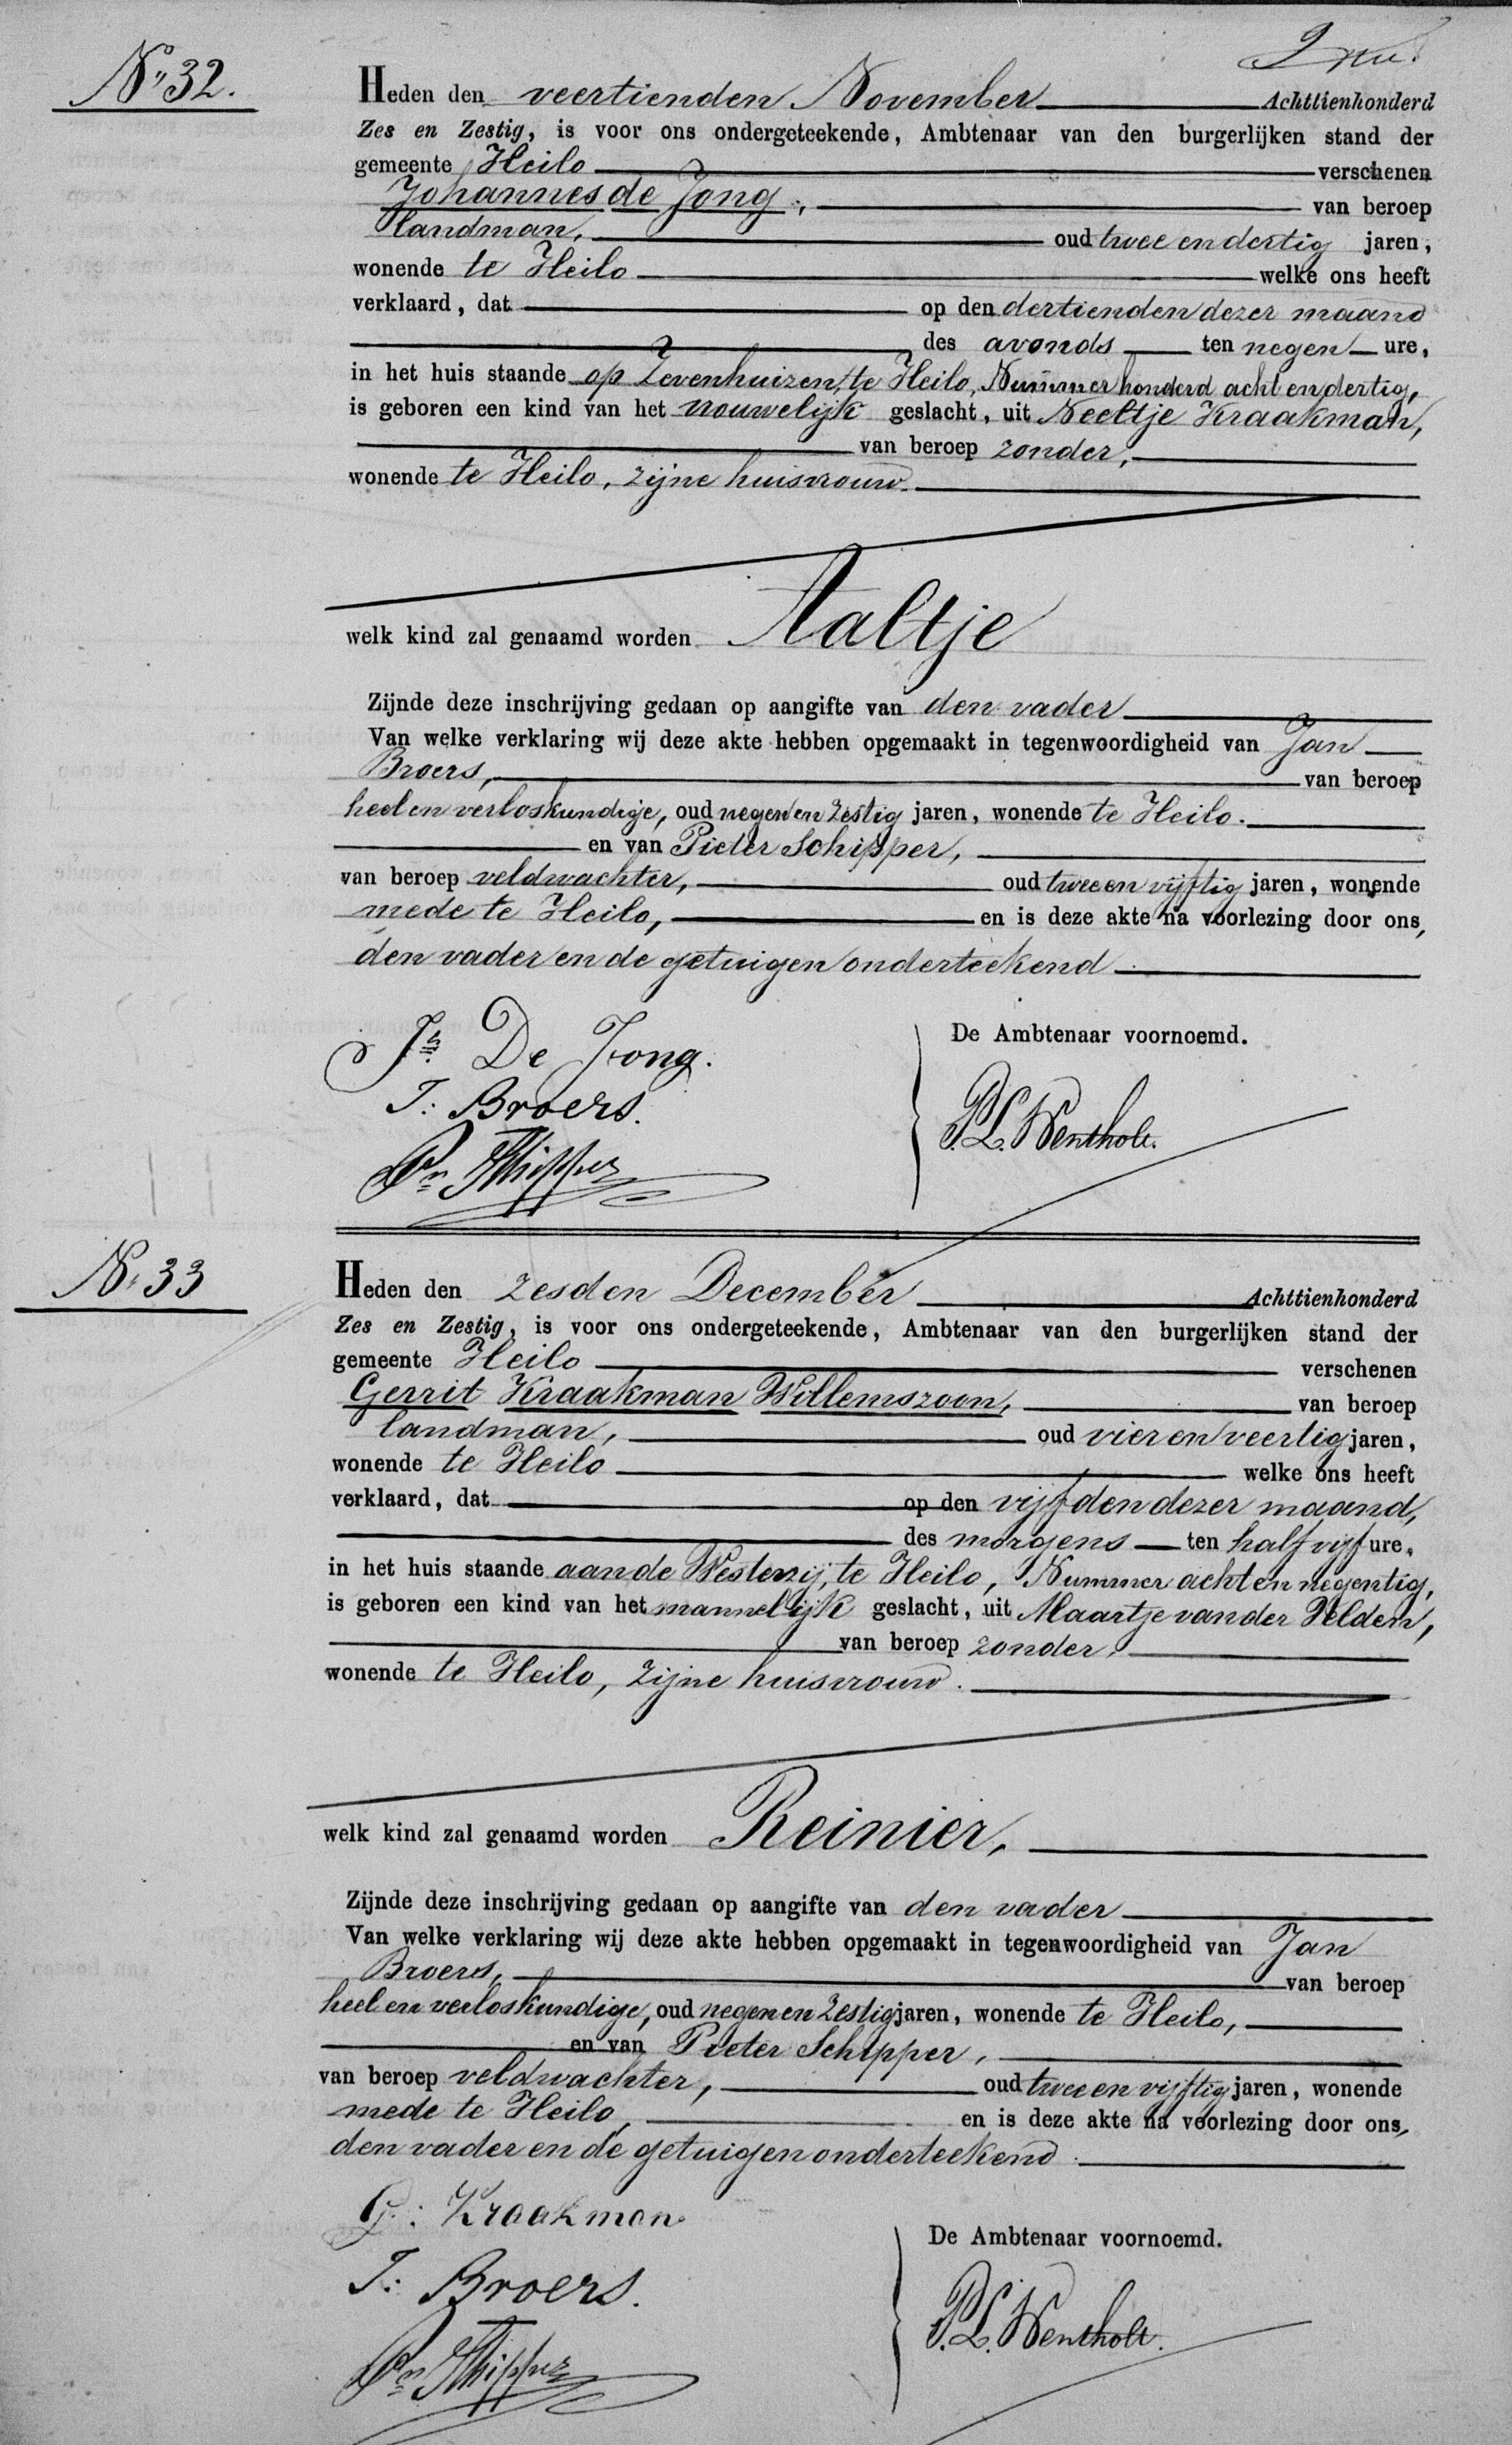 No 32.
Heden den veertienden November Achttienhonderd
Zes en Zestig, is voor ons ondergeteekende, Ambtenaar van den burgerlijken stand der
gemeente Heilo verschenen
Johannes de Jong, van beroep
landman, oud twee en dertig jaren,
wonende te Heilo welke ons heeft
verklaard, dat op den dertienden dezer maand
des avonds ten negen ure,
in het huis staande op Zevenhuizen, te Heilo, Nummer honderd acht en dertig,
is geboren een kind van het vrouwelijk geslacht, uit Neeltje Kraakman,
van beroep zonder,
wonende te Heilo, zijne huisvrouw.
welk kind zal genaamd worden Aaltje
Zijnde deze inschrijving gedaan op aangifte van den vader
Van welke verklaring wij deze akte hebben opgemaakt in tegenwoordigheid van Jan
Broers, van beroep
heel en verloskundige, oud negen en zestig jaren, wonende te Heilo.
en van Pieter Schipper,
van beroep veldwachter, oud twee en vijftig jaren, wonende
mede te Heilo, en is deze akte na voorlezing door ons,
den vader en de getuigen onderteekend.
Js. De Jong.
J: Broers.
Pr Schipper
De Ambtenaar voornoemd.
P.L. Wentholt.
No 33
Heden den zesden December Achttienhonderd
Zes en Zestig, is voor ons ondergeteekende, Ambtenaar van den burgerlijken stand der
gemeente Heilo verschenen
Gerrit Kraakman Willemszoon, van beroep
landman, oud vier en veertig jaren,
wonende te Heilo welke ons heeft
verklaard, dat op den vijfden dezer maand,
des morgens ten half vijf ure,
in het huis staande aan de Westerzij, te Heilo, Nummer acht en negentig,
is geboren een kind van het mannelijk geslacht, uit Maartje van der Velden,
van beroep zonder,
wonende te Heilo, zijne huisvrouw.
welk kind zal genaamd worden Reinier,
Zijnde deze inschrijving gedaan op aangifte van den vader
Van welke verklaring wij deze akte hebben opgemaakt in tegenwoordigheid van Jan
Broers, van beroep
heel en verloskundige, oud negen en zestig jaren, wonende te Heilo,
en van Pieter Schipper,
van beroep veldwachter, oud twee en vijftig jaren, wonende
mede te Heilo, en is deze akte na voorlezing door ons,
den vader en de getuigen onderteekend.
G: Kraakman
J: Broers.
Pr Schipper
De Ambtenaar voornoemd.
P.L. Wentholt.